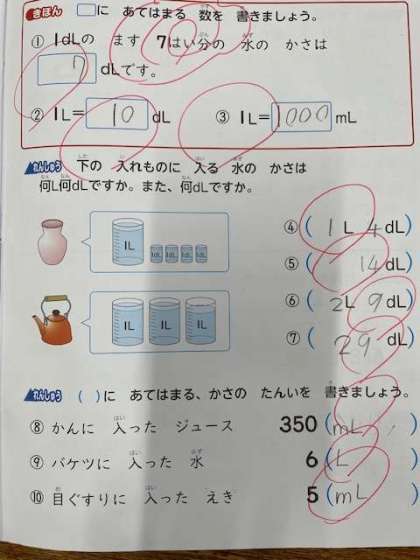 きほん □に あてはまる 数を 書きましょう。
① 1dLの ます 7はい分の 水の かさは
7 dLです。
② 1L= 10 dL ③ 1L= 1000 mL
れんしゅう 下の 入れものに 入る 水の かさは
何L何dLですか。また、何dLですか。
1L 1dL 1dL 1dL 1dL ④ ( 1L 4dL)
⑤ ( 14dL)
1L 1L 1L ⑥ ( 2L 9dL)
⑦ ( 29 dL)
れんしゅう ( )に あてはまる、かさの たんいを 書きましょう。
⑧ かんに 入った ジュース 350 (mL)
⑨ バケツに 入った 水 6 (L)
⑩ 目ぐすりに 入った えき 5 (mL)